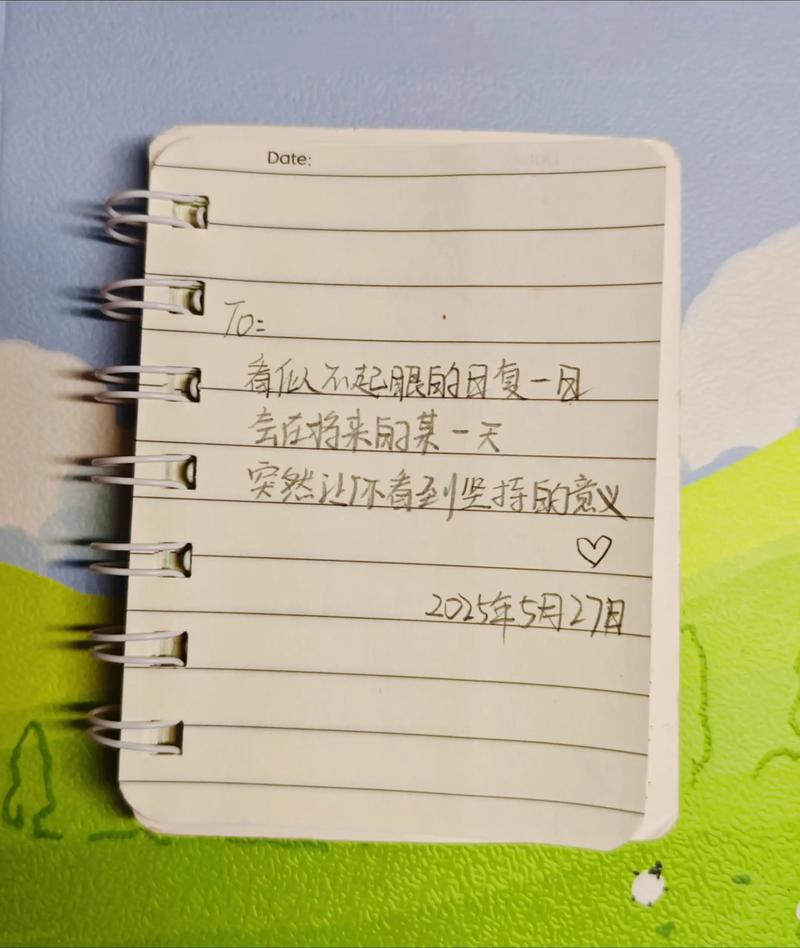 Date:
To:
看似不起眼的日复一日
会在将来的某一天
突然让你看到坚持的意义
2025年5月27日